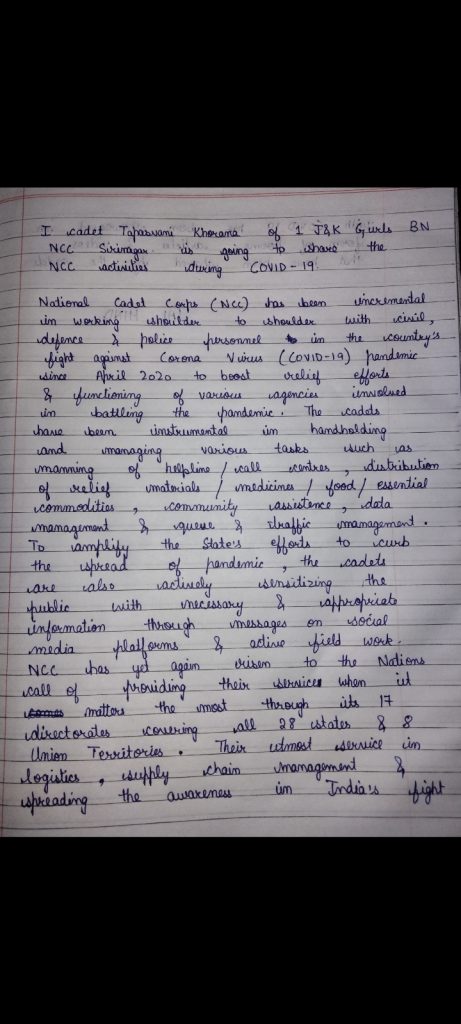 I cadet Tapaswani Khorana of 1 J&K Girls BN
NCC Sirinagar is going to share the
NCC activities during COVID-19.
National Cadet Corps (NCC) has been incremental
in working shoilder to shoulder with civil,
defence & police personnel in the country's
fight against Corona Virus (COVID-19) pandemic
since April 2020 to boost relief efforts
& functioning of various agencies involved
in battling the pandemic. The cadets
have been instrumental in handholding
and managing various tasks such as
manning of helpline / call centres, distribution
of relief materials / medicines / food / essential
commodities, community assistence, data
management & queue & traffic management.
To amplify the State's efforts to curb
the spread of pandemic, the cadets
are also actively sensitizing the
public with necessary & appropriate
information through messages on social
media platforms & active field work.
NCC has yet again risen to the Nations
call of providing their services when it
matters the most through its 17
directorates covering all 28 states & 8
Union Territories. Their utmost service in
logistics, supply chain management &
spreading the awareness in India's fight